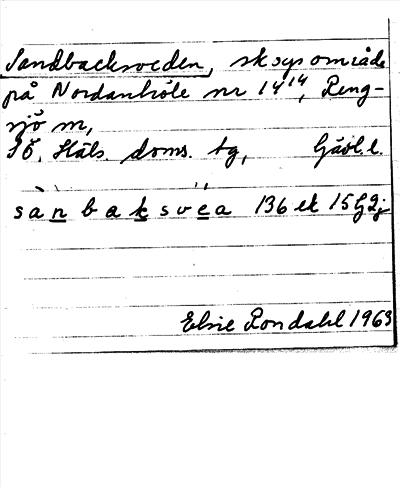 Sandbacksveden, sk.sysområde
på Nordanhöle nr 14¹⁴, Reng-
sjö sn,
Sö. Häls. doms. tg, Gävl.l.
sànbaksvèa 136 ek 15G2j
Elsie Rondahl 1963